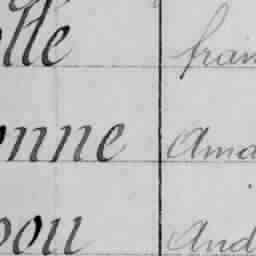 olle fran
onne Ama
pou And